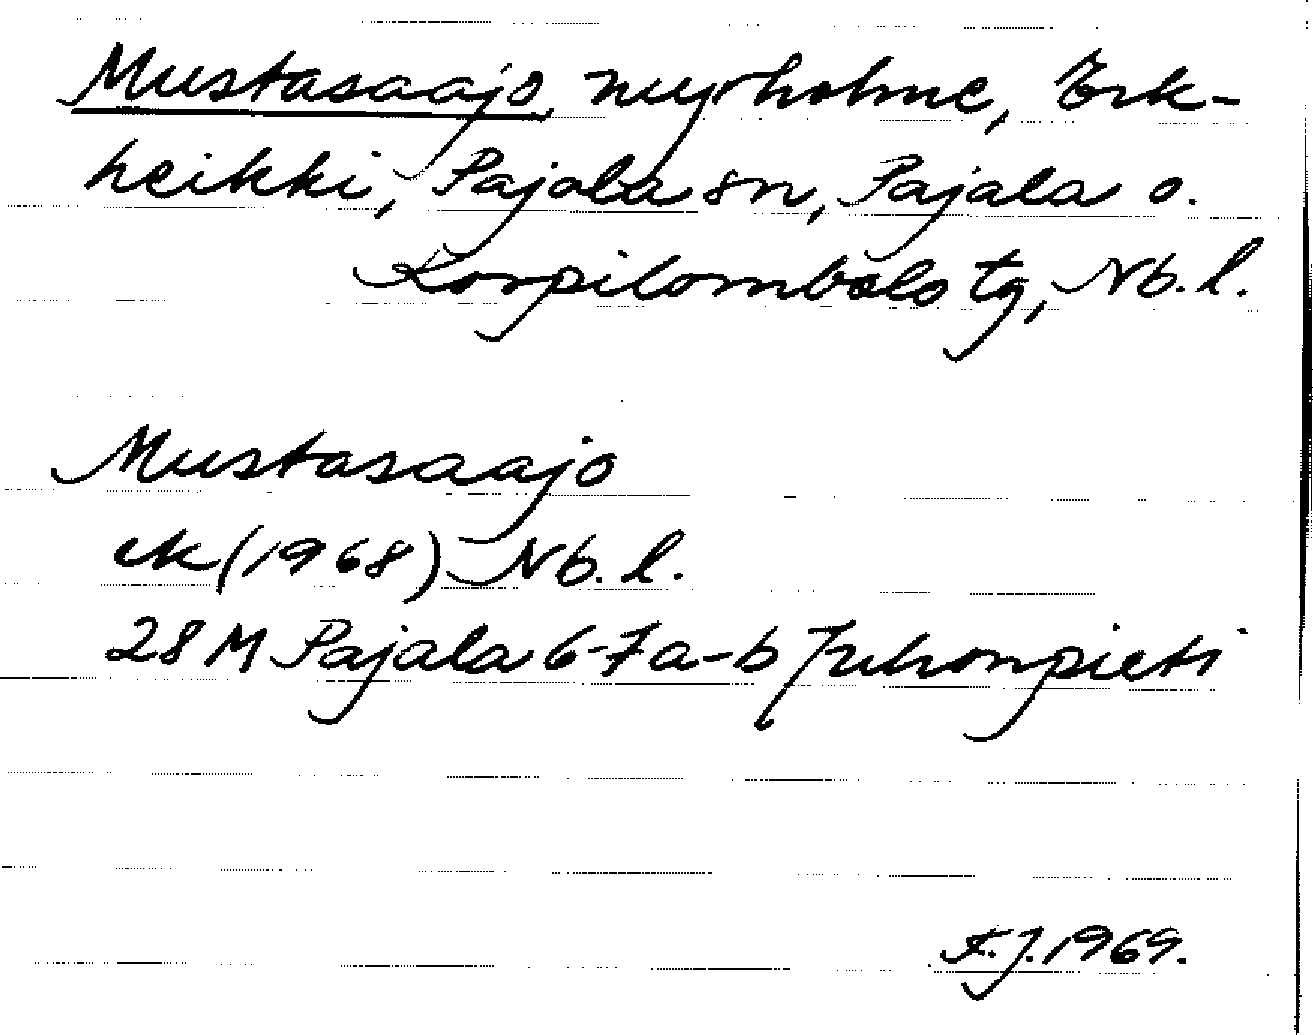 Mustasaajo, myrholme, Erk-
heikki, Pajala sn, Pajala o.
Korpilombolo tg, Nb. l.
Mustasaajo
ek (1968) Nb. l.
28 M Pajala 6-7 a-b Juhonpieti
F.J. 1969.